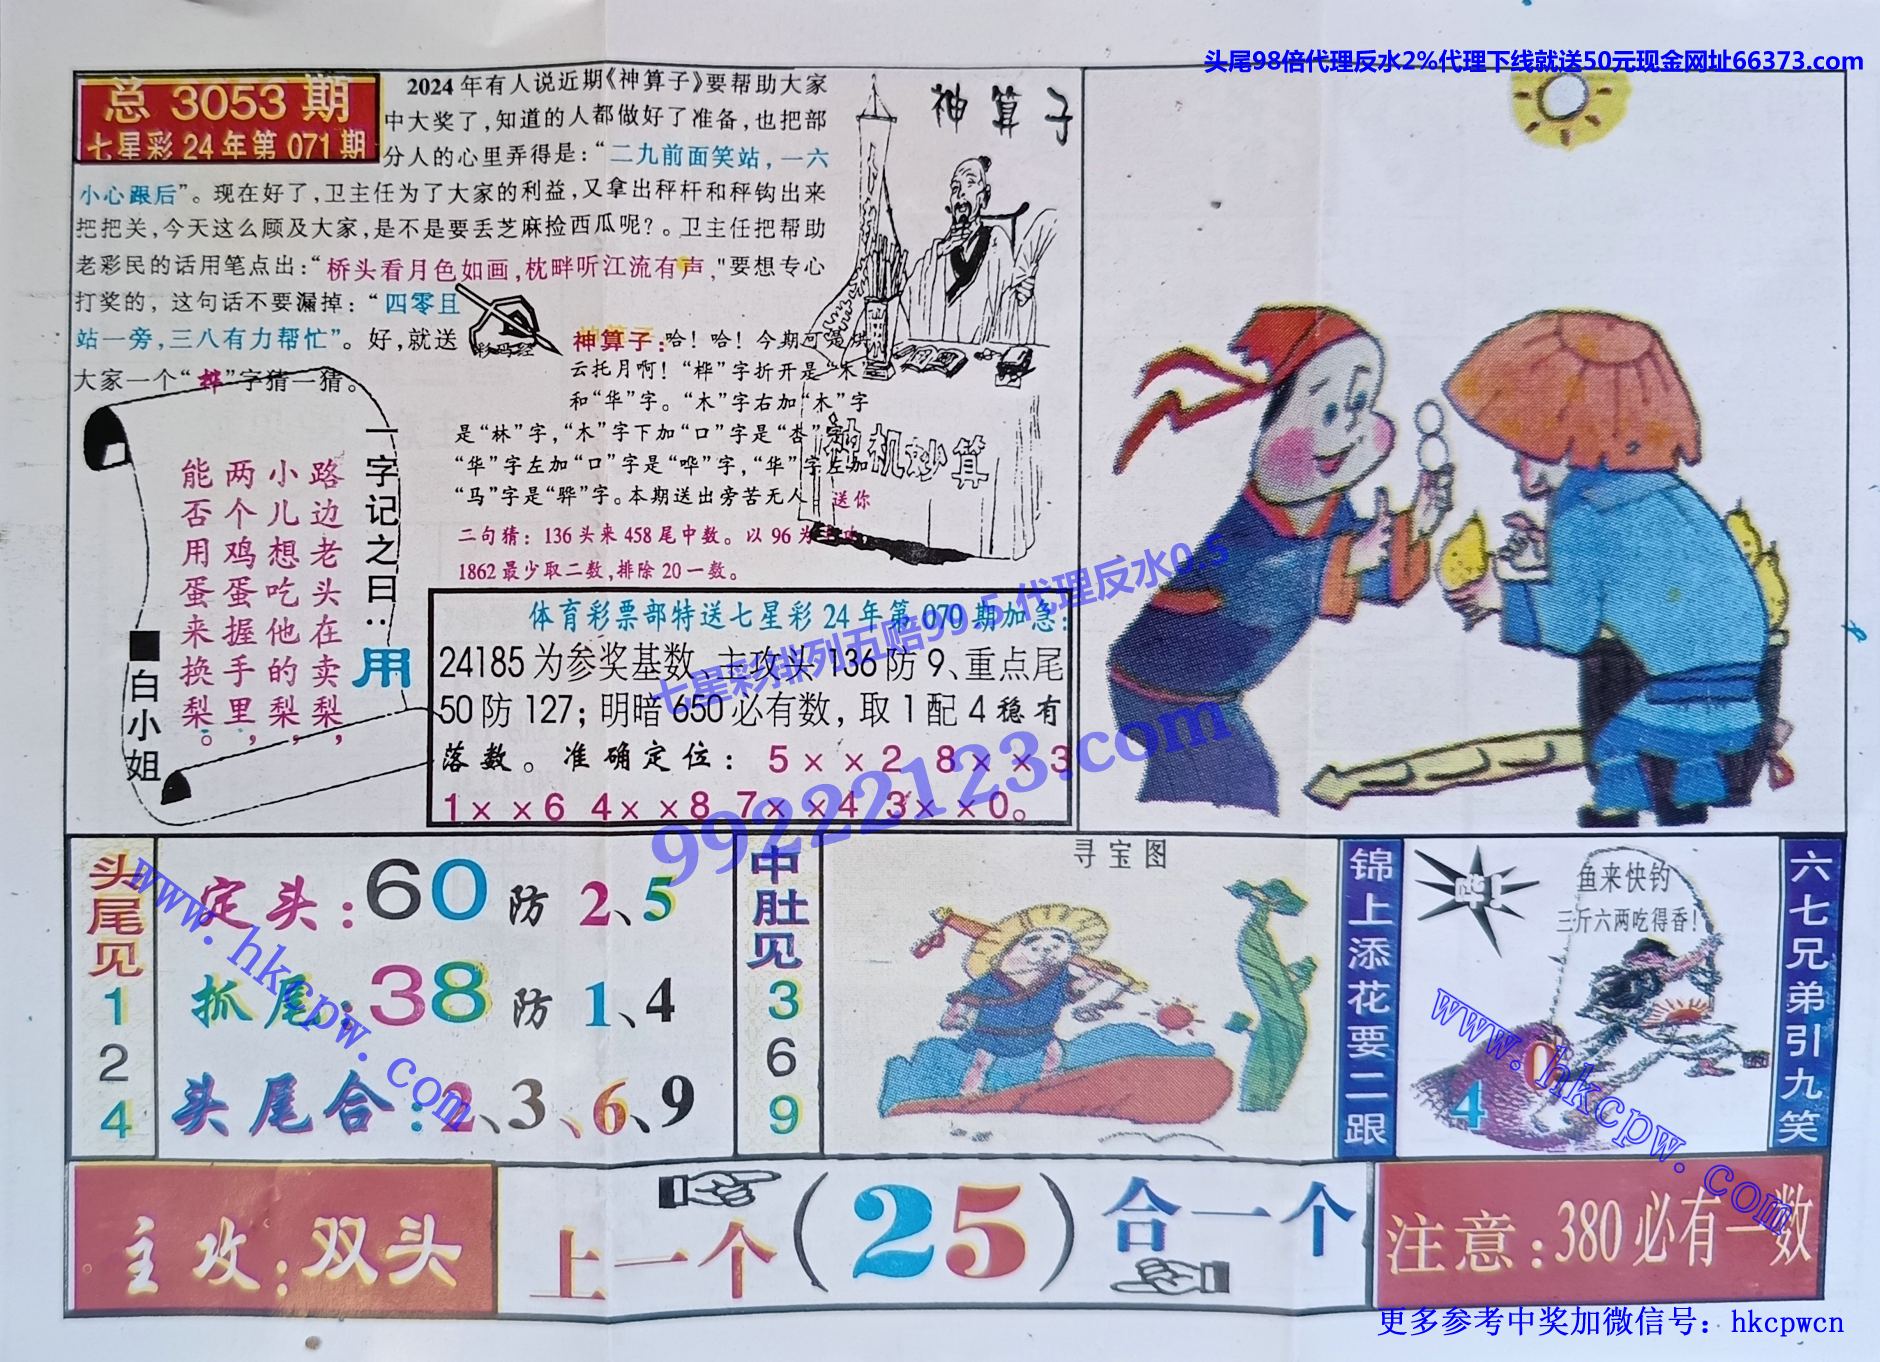 头尾98倍代理反水2%代理下线就送50元现金网址66373.com
总 3053 期
七星彩 24 年第 071 期
2024 年有人说近期《神算子》要帮助大家
中大奖了,知道的人都做好了准备,也把部
分人的心里弄得是:“二九前面笑站,一六
小心跟后”。现在好了,卫主任为了大家的利益,又拿出秤杆和秤钩出来
把把关,今天这么顾及大家,是不是要丢芝麻捡西瓜呢?。卫主任把帮助
老彩民的话用笔点出:“桥头看月色如画,枕畔听江流有声,"要想专心
打奖的, 这句话不要漏掉:“四零且
站一旁,三八有力帮忙”。好,就送
大家一个“桦”字猜一猜。
彩码经
神算子
神算子:哈! 哈! 今期可是烘
云托月啊! “桦”字折开是“木”
和“华”字。“木”字右加“木”字
是“林”字,“木”字下加“口”字是“杏”字,
“华”字左加“口”字是“哗”字,“华”字左加
“马”字是“骅”字。本期送出旁苦无人 送你
二句猜: 136 头来 458 尾中数。以 96 为
1862 最少取二数,排除 20 一数。
神机妙算
一字记之曰:用
路边老头在卖梨,
小儿想吃他的梨,
两个鸡蛋握手里,
能否用蛋来换梨。
■白小姐
体育彩票部特送七星彩 24 年第 070 期加急:
24185 为参奖基数、主攻头 136 防 9、重点尾
50 防 127; 明暗 650 必有数, 取 1 配 4 稳有
落数。准确定位: 5××2 8××3
1××6 4××8 7××4 3××0。
七星彩排列五赔99.5 代理反水0.5
99222123.com
头尾见
1
2
4
定头:60 防 2、5
抓尾:38 防 1、4
头尾合:2、3、6、9
www.hkcpw.com
中肚见
3
6
9
寻宝图
锦上添花要二跟
鱼来快钓
三斤六两吃得香!
0
4
www.hkcpw.com
六七兄弟引九笑
主攻:双头
上一个(25)合一个
注意:380 必有一数
更多参考中奖加微信号: hkcpwcn